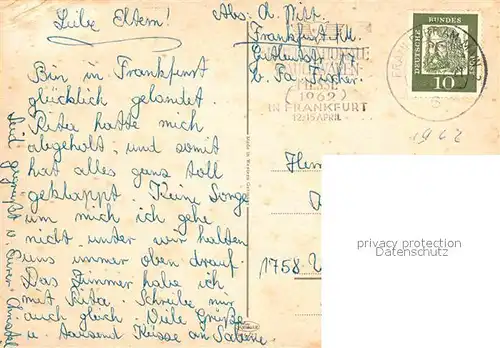 Liebe Eltern!
Bin in Frankfurt
glücklich gelandet.
Rita hatte mich
abgeholt, und somit
hat alles ganz toll
geklappt. Keine Sorge
um mich ich gehe
nicht unter wir halten
uns immer oben drauf.
Das Zimmer habe ich
mit Rita. Schreibe mir
auch gleich. Viele Grüße
u. tausend Küsse an Sabine
Seid gegrüßt v. Eurer Christel
Abs:
Frankfurt/M.
b. Fa. Fischer
MESSE
1962
IN FRANKFURT
12.-15. APRIL
DEUTSCHE BUNDESPOST
10
1962
1758
privacy protection
Datenschutz